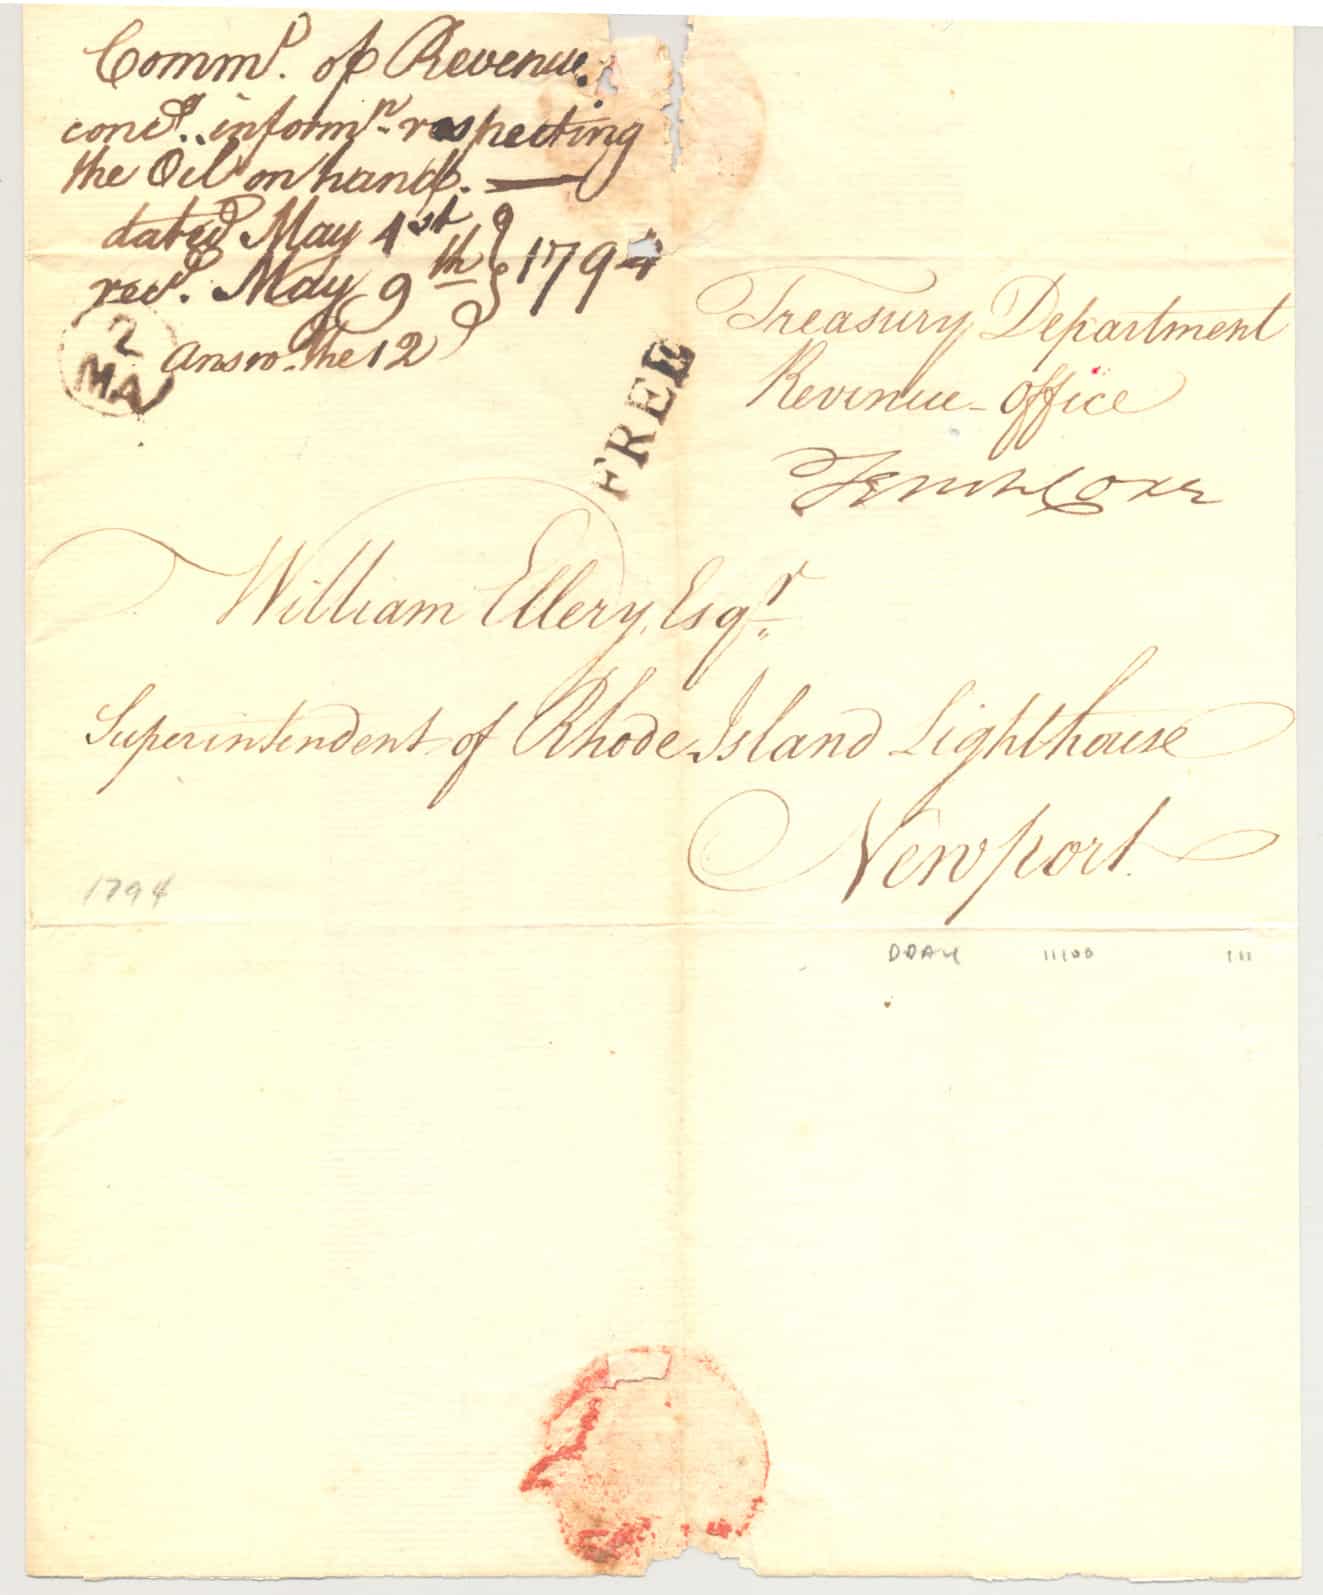 Comm.r of Revenue.
conc.g informn respecting
the Oil on hand. —
dated May 1st
rec.d May 9th } 1794
2
MA
answ. the 12
FREE
Treasury Department
Revenue-Office
Tench Coxe
William Ellery, Esqr
Superintendent of Rhode Island Lighthouse
Newport.
1794